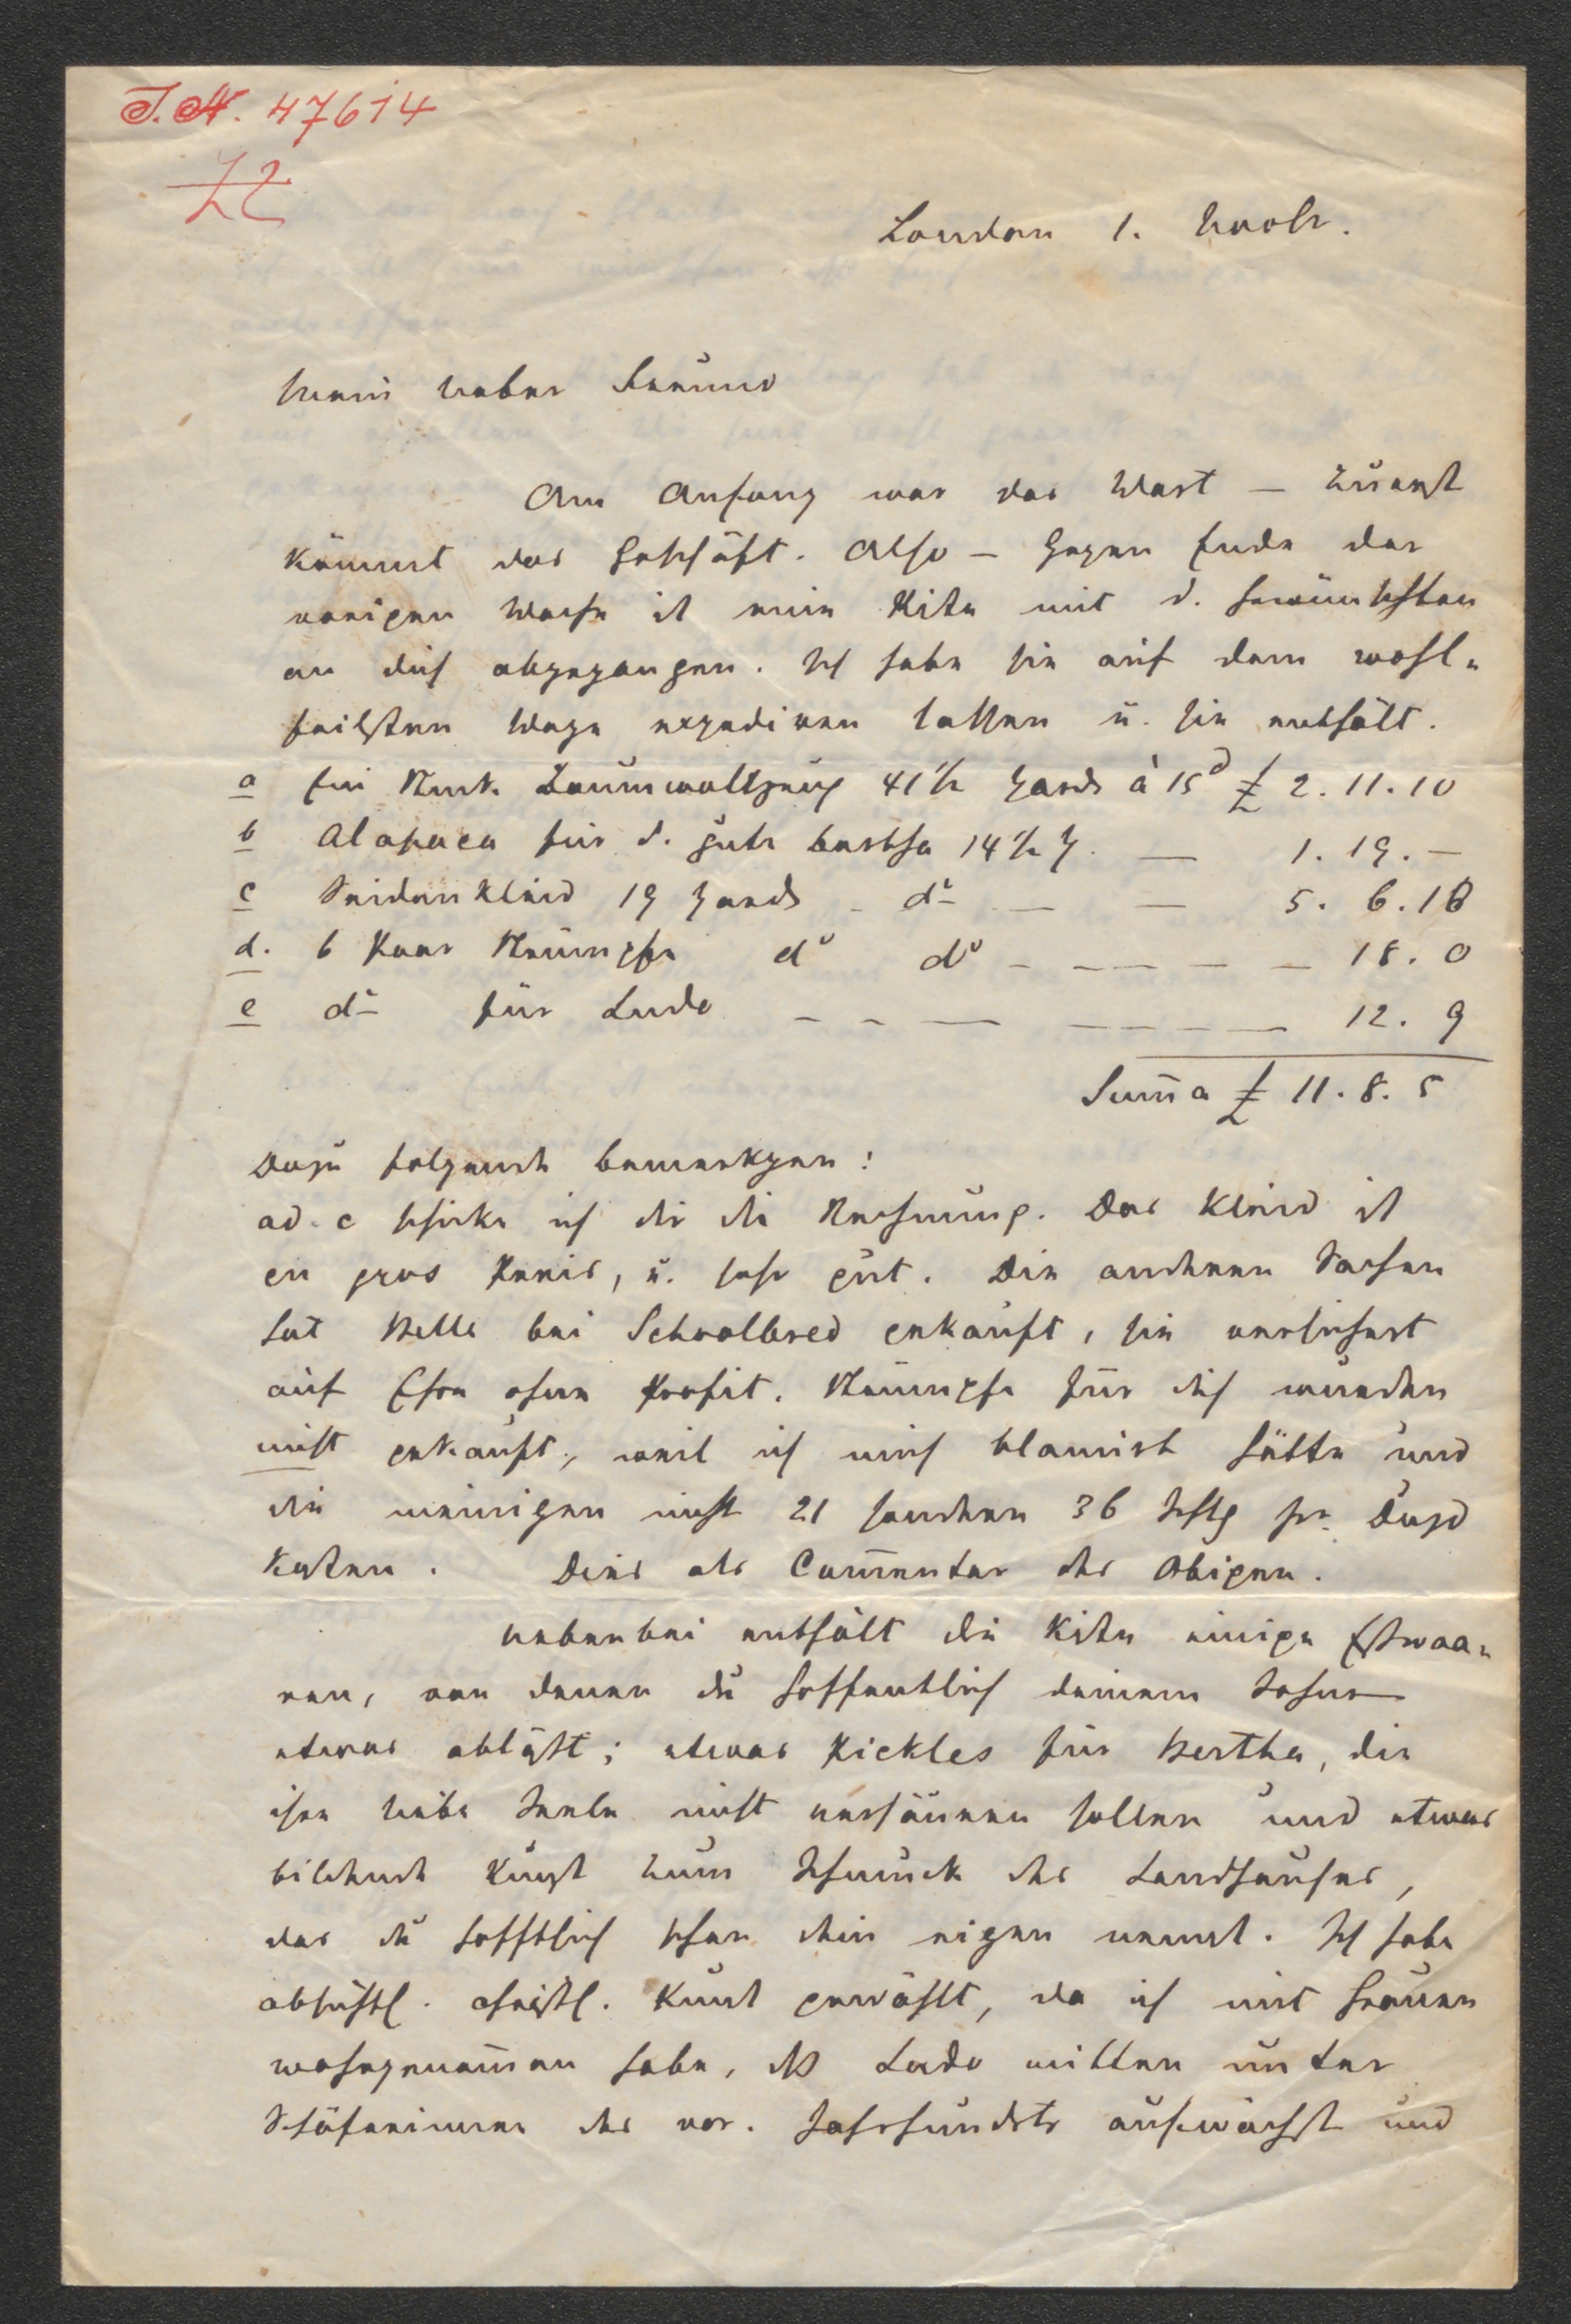 I.N. 47614
London 1. Novbr.
Mein lieber Freund
Am Anfang war das Wort – zuerst
kommt das Geschäft. Also – Gegen Ende der
vorigen Woche ist eine Kiste mit d. Gewünschten
an dich abgegangen. Ich habe sie auf dem wohl-
feilsten Wege expediren lassen u. sie enthält.
a Ein Stück Baumwollzeug 41 1/2 Yards à 15d £ 2. 11. 10
b Alapaca für d. gute Bertha 14 1/2 Y. — 1. 19. –
c Seidenkleid 19 Yards – do — — 5. 6. 10
d. 6 Paar Strümpfe do do – – — – – 18. 0
e do für Ludo – – — – – – — 12. 9
Suma £ 11. 8. 5
Dazu folgende Bemerkgen:
ad. c schicke ich dir die Rechnung. Das Kleid ist
en gros Preis, u. sehr gut. Die anderen Sachen
hat Bella bei Schoolbred gekauft, sie versichert
auf Ehre ohne Profit. Strümpfe für dich wurden
nicht gekauft, weil ich mich blamirt hätte und
die meinigen nicht 21 sondern 36 Schlg pr. Duzd
kosten. Dies als Comentar des Obigen.
Nebenbei enthält die Kiste einige Esswaa-
ren, von denen du hoffentlich deinem Sohne
etwas abläßt; etwas Pickles für Bertha, die
ihre liebe Seele nicht versäuren sollen und etwas
bildende Kunst zum Schmuck des Landhauses,
das du hofftlich schon dein eigen nennst. Ich habe
absichtl. christl. Kunst gewählt, da ich mit Grauen
wahrgenomen habe, dß Ludo mitten unter
Schäfereinen des vor. Jahrhundrts aufwächst und